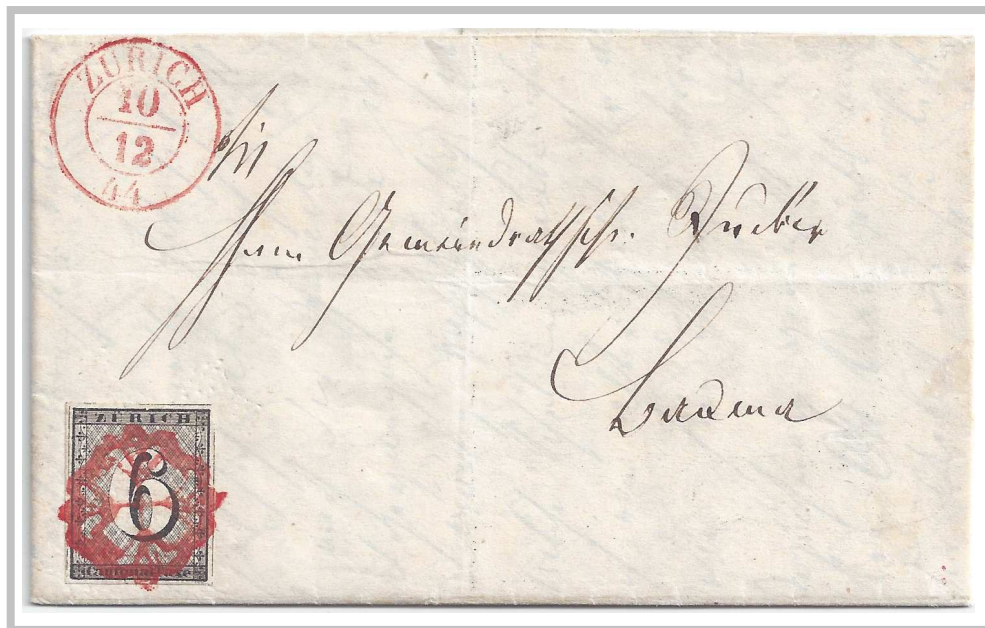 ZÜRICH
10
12
44
Herrn Gemeindrathsch.
Bauma
ZÜRICH
6
Cantonal-Taxe